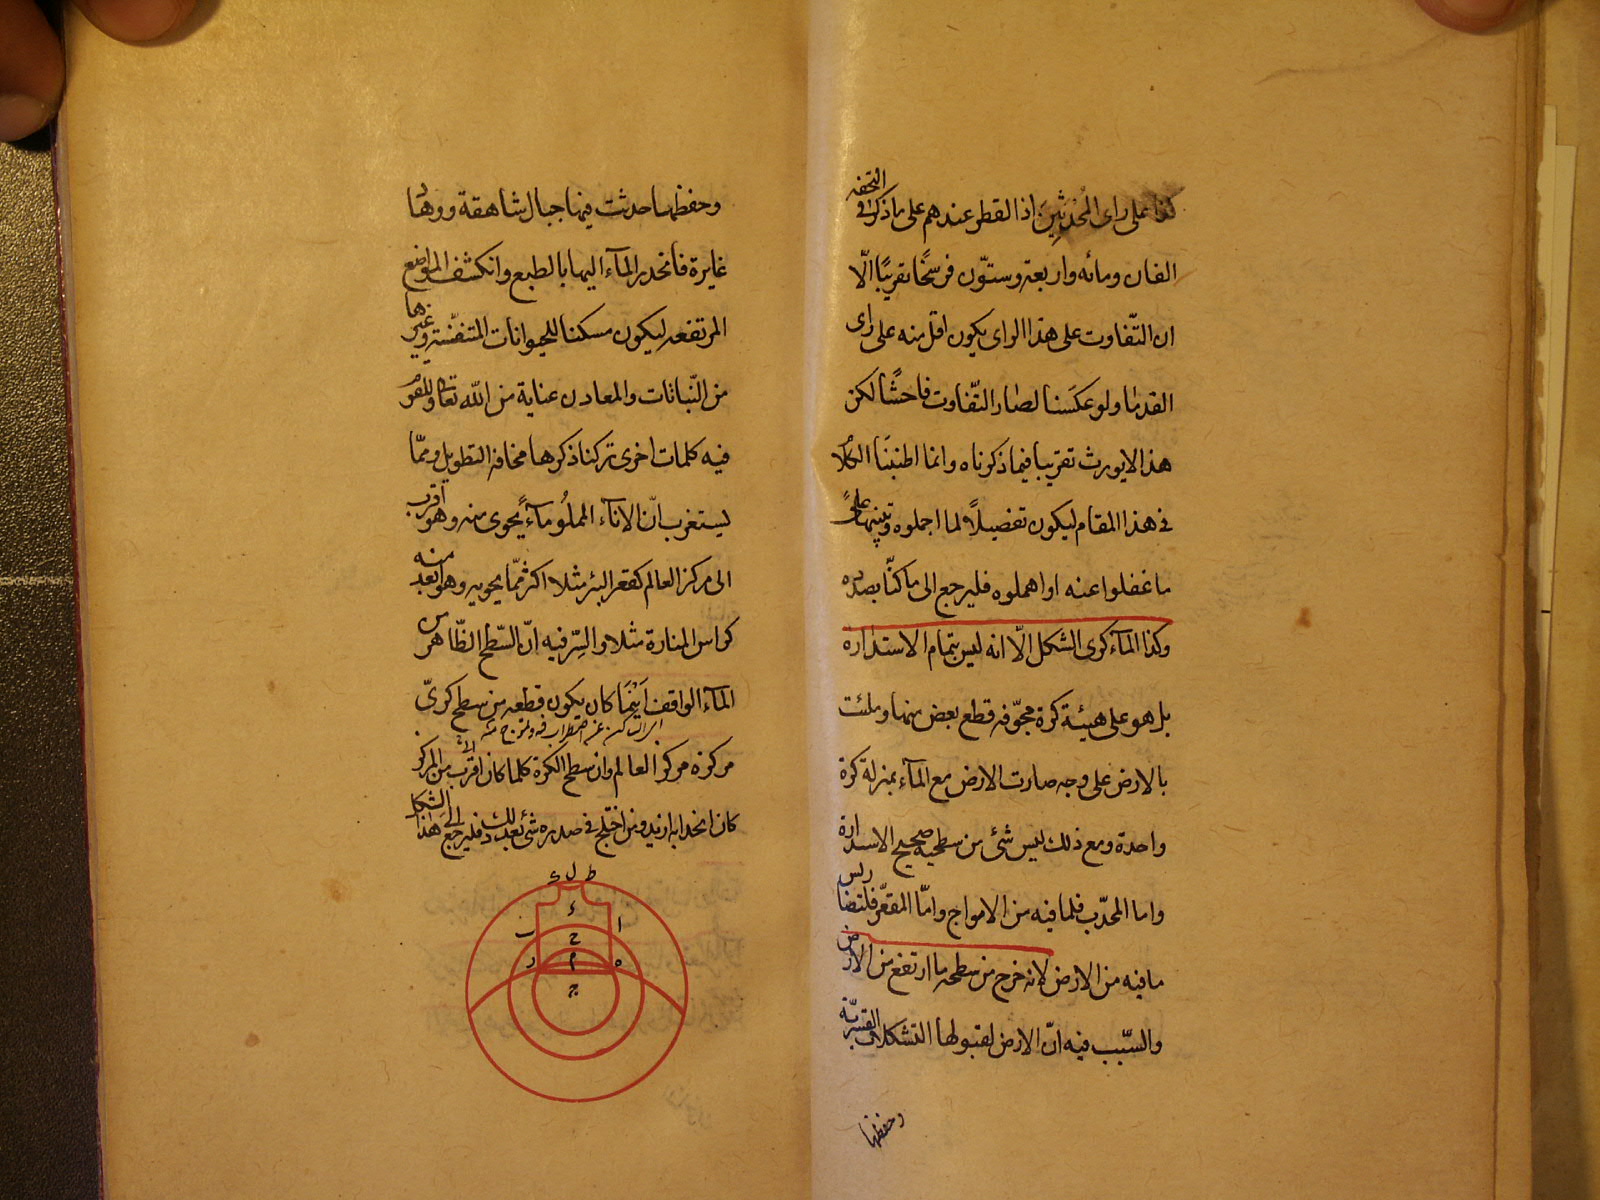 على راى المحدثين اذا القطر عندهم على ما ذكر فى التحفه
الفان ومائه واربعة وستون فرسخًا تقريبًا الّا
ان التّفاوت على هذا الراى يكون اقل منه على راى
القدماء ولو عكسنا لصار التّفاوت فاحشًا لكن
هذا لا يورث تقريبا فيما ذكرناه وانما اطنبنا الكلا
فى هذا المقام ليكون تفصيلًا لما اجملوه وتنبيها على
ما غفلوا عنه او اهملوه فليرجع الى ما كنّا بصدده
وكذا المآء كرى الشكل الّا انه ليس بتمام الاستداره
بل هو على هيئة كرة مجوّفه قطع بعض منها وملئت
بالارض على وجه صارت الارض مع المآء بمنزلة كرة
واحدة ومع ذلك ليس شئ من سطحيه صحيح الاستدارة
واما المحدّب فلما فيه من الامواج وامّا المقعّر فلتضاريس
ما فيه من الارض لانه خرج من سطحه ما ارتفع من الارض
والسّبب فيه انّ الارض لقبولها التشكلات القسريّة
وحفظها
وحفظها حدثت فيها جبال شاهقة ووهاد
غايرة فانحدر المآء اليها بالطبع وانكشف المواضع
المرتفعه ليكون مسكنا للحيوانات المتنفّسة وغيرها
من النّباتات والمعادن عناية من اللّه تعالى وللقوم
فيه كلمات اخرى تركنا ذكرها مخافة التطويل وممّا
يستغرب انّ الانآء المملُو مآءً يحوى منه وهو اقرب
الى مركز العالم كقعر البئر مثلا اكثر ممّا يحويه وهو ابعد منه
كراس المنارة مثلا والسّر فيه انّ السّطح الظّاهر من
المآء الواقف اَيْنَما كان يكون قطعه من سطح كرىّ
مركزه مركز العالم وان سطح الكرة كلما كان اقرب من المركز
كان انحدابه ازيد ومن اختلج فى صدره شئ بعد ذلك فليرجع الى هذا الشكل
ط ل ى
ا ء ب
ح
ه م ر
ج